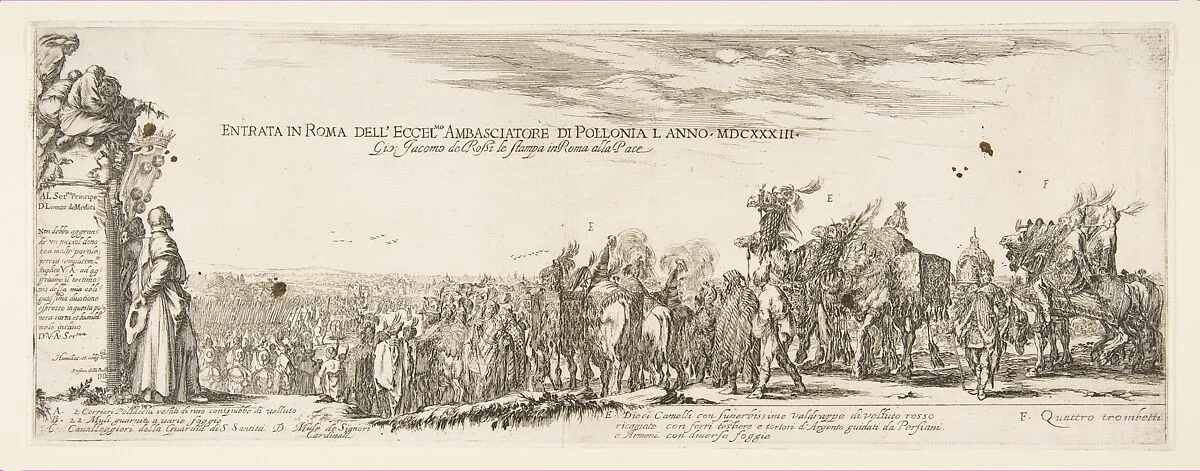 ENTRATA IN ROMA DELL' ECCEL.MO AMBASCIATORE DI POLLONIA L ANNO · MDCXXXIII ·
Gio: Jacomo de Rossi le stampa in Roma alla Pace
AL Ser.mo Principe
D. Lorenzo de Medici
Non debbo aggran
dir un picciol dono
con molte parole
D.V.A. Ser.ma
E
E
F
A. 2 Corrieri Pollacchi vestiti di raso con Giubbe di velluto
B. 22 Muli guarniti a varie foggie
C. Cavalleggieri della Guardia di S. Santità D. Mule de Signori
Cardinali
E Dieci Camelli con superbissime valdrappe di velluto rosso
ricamate con ferri testiere e tortori d'Argento guidati da Persiani
e Armeni con diverse foggie
F. Quattro trombetti